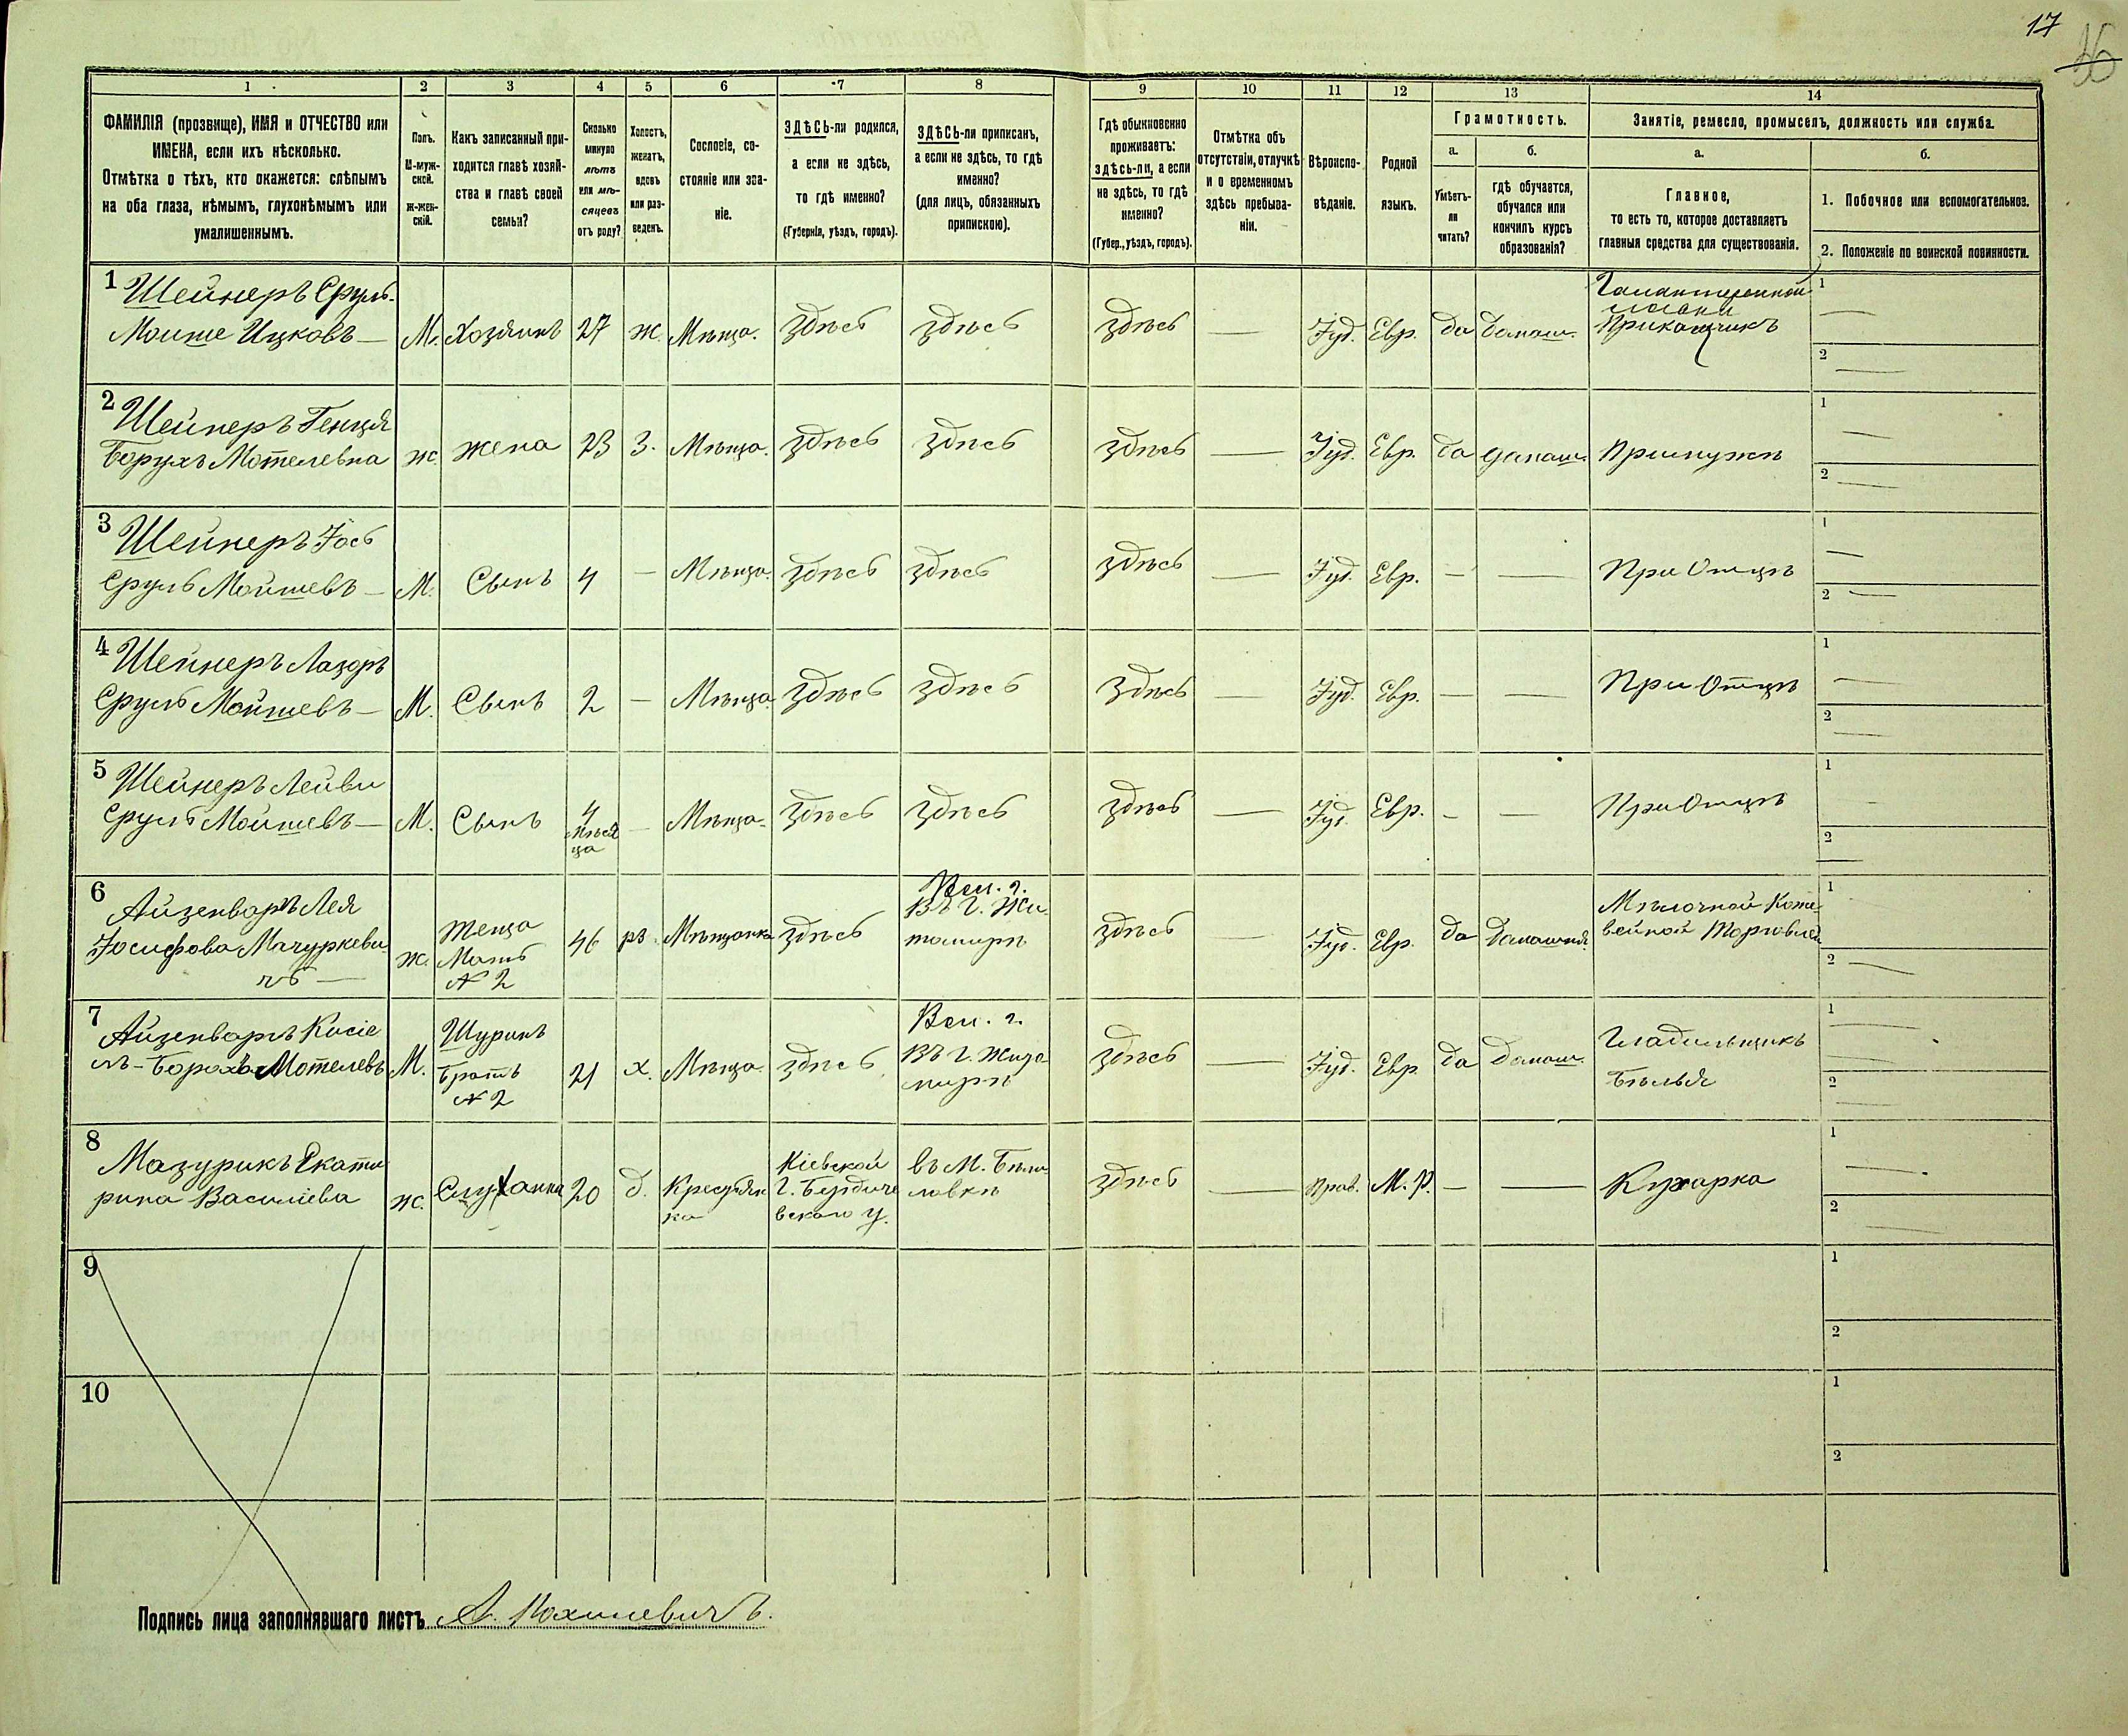 17
16
1 2 3 4 5 6 7 8 9 10 11 12 13 14
ФАМИЛІЯ (прозвище), ИМЯ и ОТЧЕСТВО или
ИМЕНА, если ихъ нѣсколько.
Отмѣтка о тѣхъ, кто окажется: слѣпымъ
на оба глаза, нѣмымъ, глухонѣмымъ или
умалишеннымъ.
Полъ.
М-муж-
ской.
Ж-жен-
скій.
Какъ записанный при-
ходится главѣ хозяй-
ства и главѣ своей
семьи?
Сколько
минуло
лѣтъ
или мѣ-
сяцевъ
отъ роду?
Холостъ,
женатъ,
вдовъ
или раз-
веденъ.
Сословіе, со-
стояніе или зва-
ніе.
ЗДѢСЬ-ли родился,
а если не здѣсь,
то гдѣ именно?
(Губернія, уѣздъ, городъ).
ЗДѢСЬ-ли приписанъ,
а если не здѣсь, то гдѣ
именно?
(для лицъ, обязанныхъ
припискою).
Гдѣ обыкновенно
проживаетъ:
здѣсь-ли, а если
не здѣсь, то гдѣ
именно?
(Губер., уѣздъ, городъ).
Отмѣтка объ
отсутствіи, отлучкѣ
и о временномъ
здѣсь пребыва-
ніи.
Вѣроиспо-
вѣданіе.
Родной
языкъ.
Грамотность.
а.
Умѣетъ-
ли
читать?
б.
гдѣ обучается,
обучался или
кончилъ курсъ
образованія?
Занятіе, ремесло, промыселъ, должность или служба.
а.
Главное,
то есть то, которое доставляетъ
главныя средства для существованія.
б.
1. Побочное или вспомогательное.
2. Положеніе по воинской повинности.
1 Шейнеръ Сруль-
Моише Ицковъ —
М. Хозяинъ 27 ж. Мѣща. здѣсь здѣсь здѣсь — Іуд. Евр. да домаш.
Галантерейной
лавки
Прикащикъ
1 —
2 —
2 Шейнеръ Генця
Борухъ Мотелевна
ж. жена 23 З. Мѣща. здѣсь здѣсь здѣсь — Іуд. Евр. да домаш. При мужѣ
1 —
2 —
3 Шейнеръ Іось
Сруль Мойшевъ —
М. Сынъ 4 — Мѣща. здѣсь здѣсь здѣсь — Іуд. Евр. — — При Отцѣ
1 —
2 —
4 Шейнеръ Лазоръ
Сруль Мойшевъ —
М. Сынъ 2 — Мѣща здѣсь здѣсь здѣсь — Іуд. Евр. — — При Отцѣ
1 —
2 —
5 Шейнеръ Лейви
Сруль Мойшевъ —
М. Сынъ
4
мѣся
ца
— Мѣща. здѣсь здѣсь здѣсь — Іуд. Евр. — — При Отцѣ
1 —
2 —
6 Айзенваръ Лея
Іосифова Мачуркеви
чъ —
ж.
Теща
Мать
№ 2
46 рз. Мѣщанка здѣсь
Вол. г.
Въ г. Жи
томирѣ
здѣсь — Іуд. Евр. да Домашня.
Мѣлочной
Торговлей
1
2 —
7 Айзенваръ Кисіе
лъ-Борохъ Мотелевъ
М.
Шуринъ
Братъ
№ 2
21 х. Мѣща. здѣсь
Вол. г.
Въ г. Жито
мирѣ
здѣсь — Іуд. Евр. да Домаш.
Гладильщикъ
Бѣлья
1 —
2 —
8 Мазурикъ Екати
рина Василіева
ж. Служанка 20 д.
Крестьян
ка
Кіевской
г. Бердиче
вскаго у.
въ М. Бѣли
ловкѣ
здѣсь — прав. М. Р. — — Кухарка
1 —
2 —
9
1
2
10
1
2
Подпись лица заполнявшаго листъ